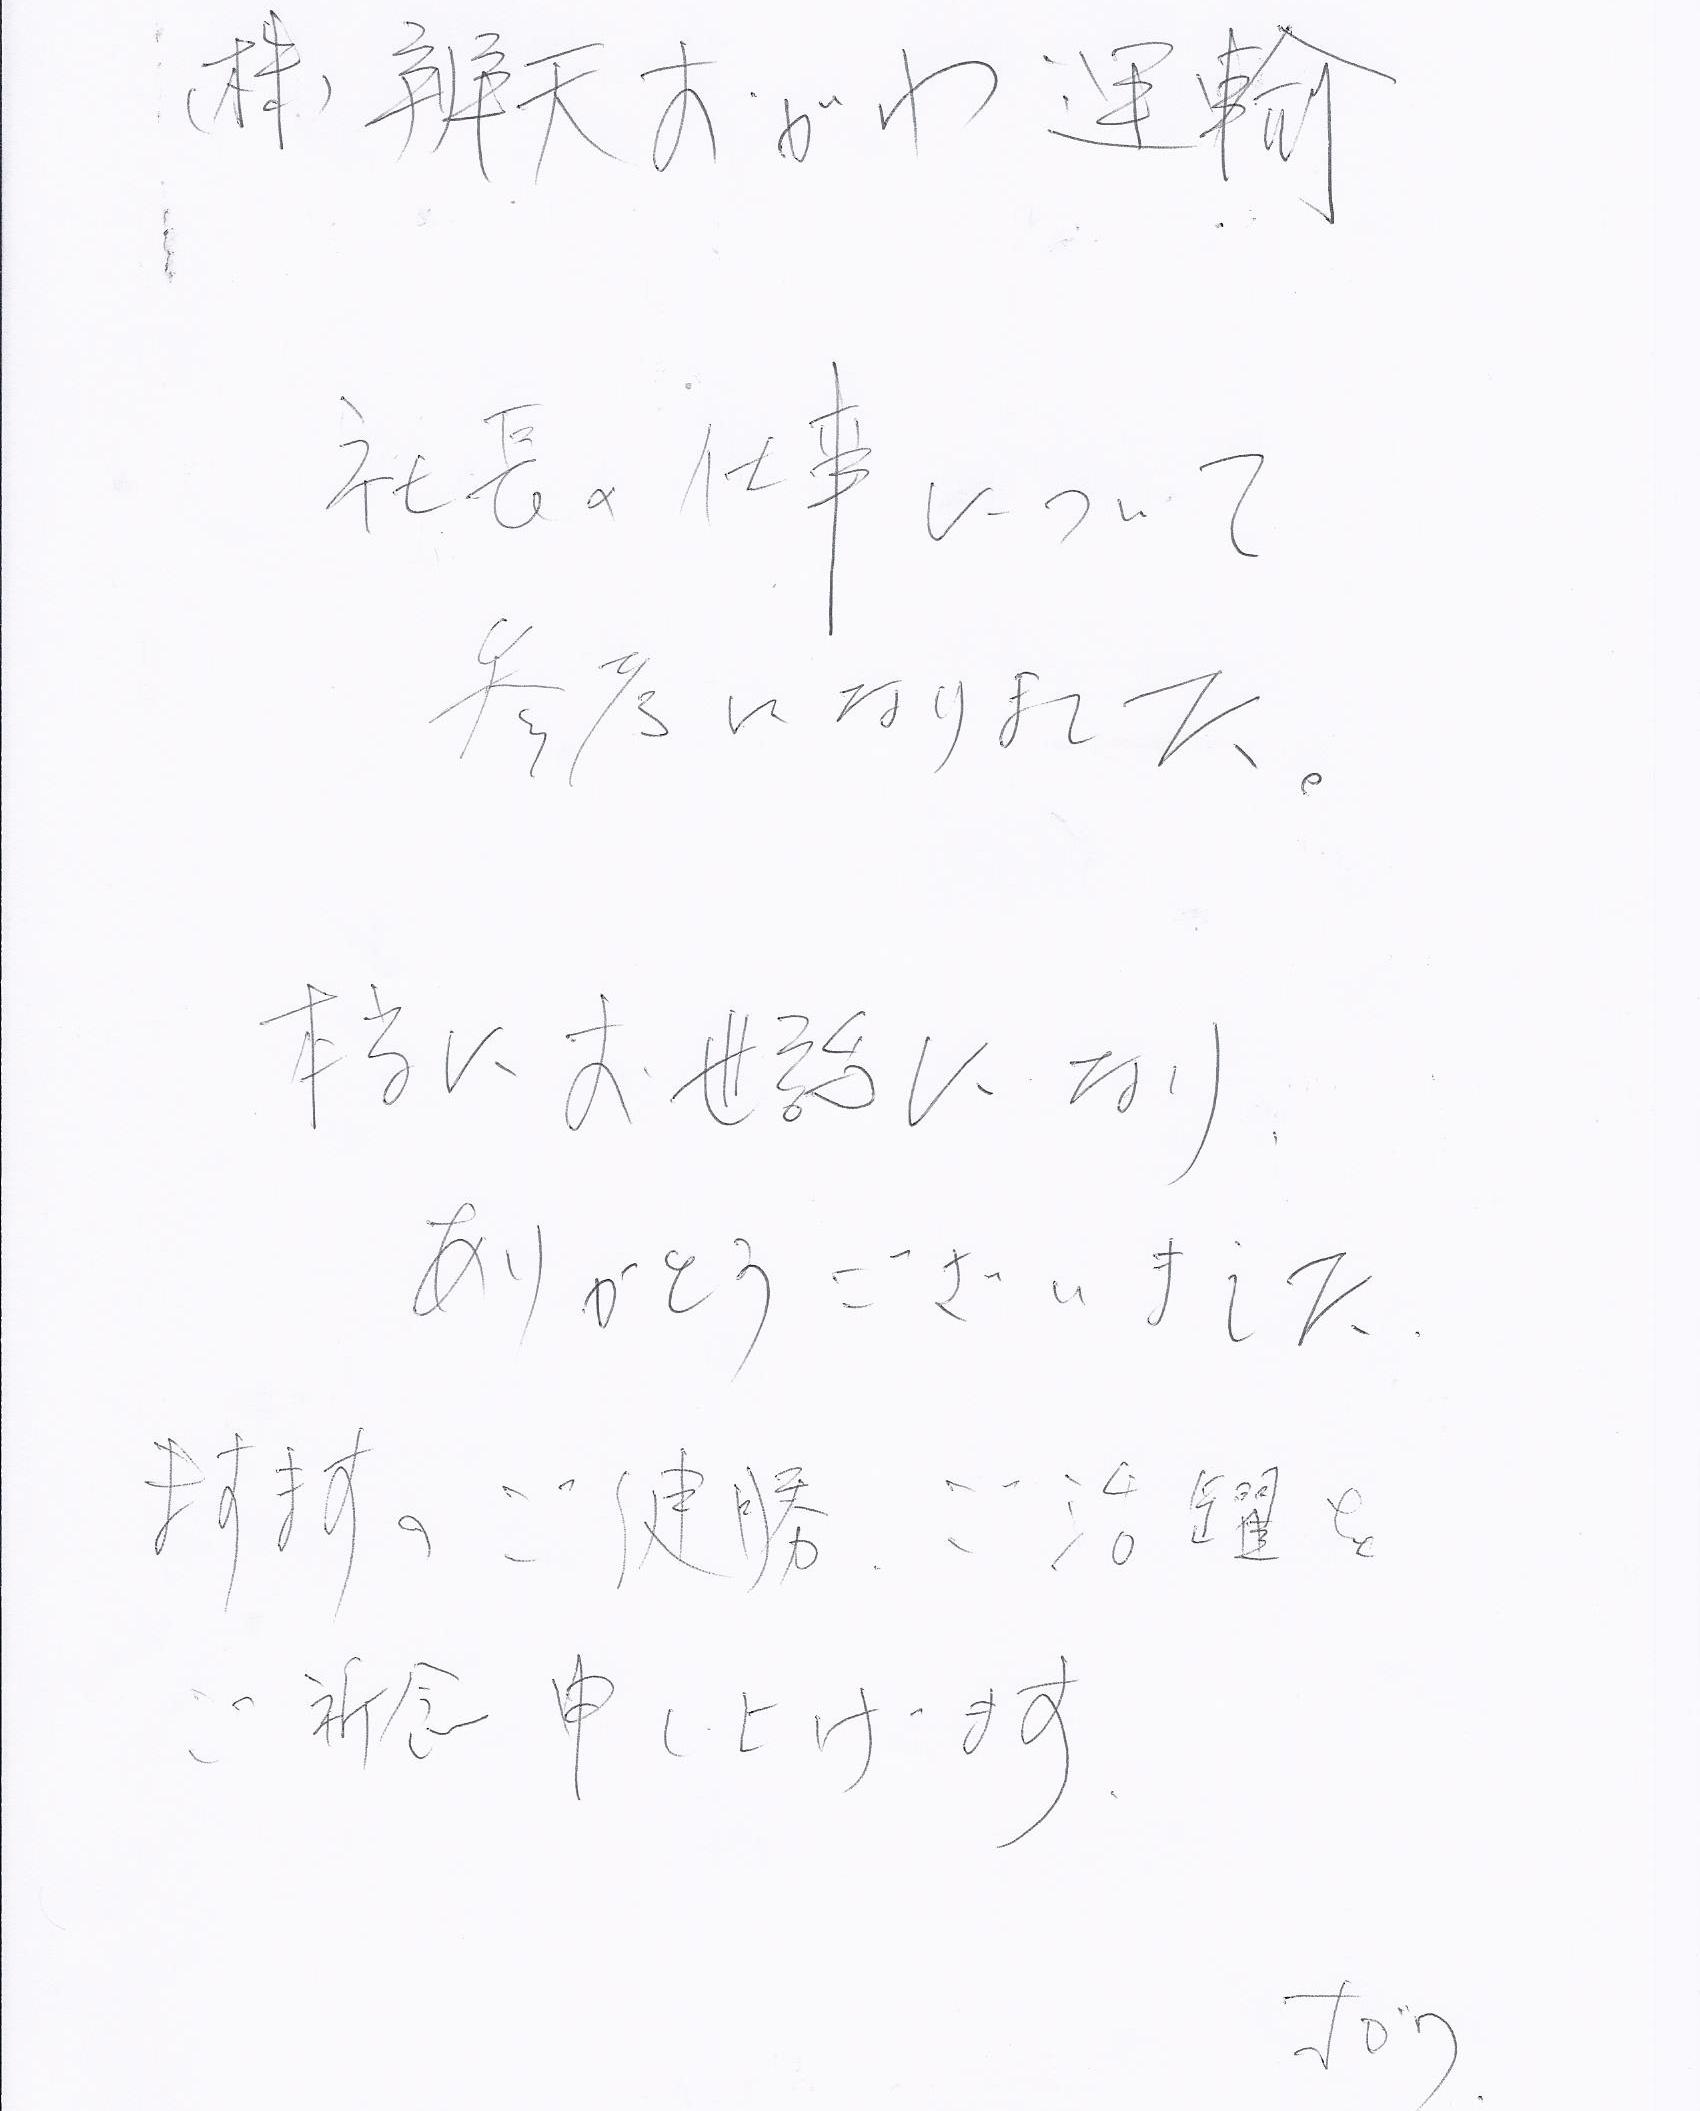 (株)辨天おがわ運輸
社長の仕事について
参考になりました。
本当にお世話になり
ありがとうございました.
ますますのご健勝、ご活躍を
ご祈念申し上げます.